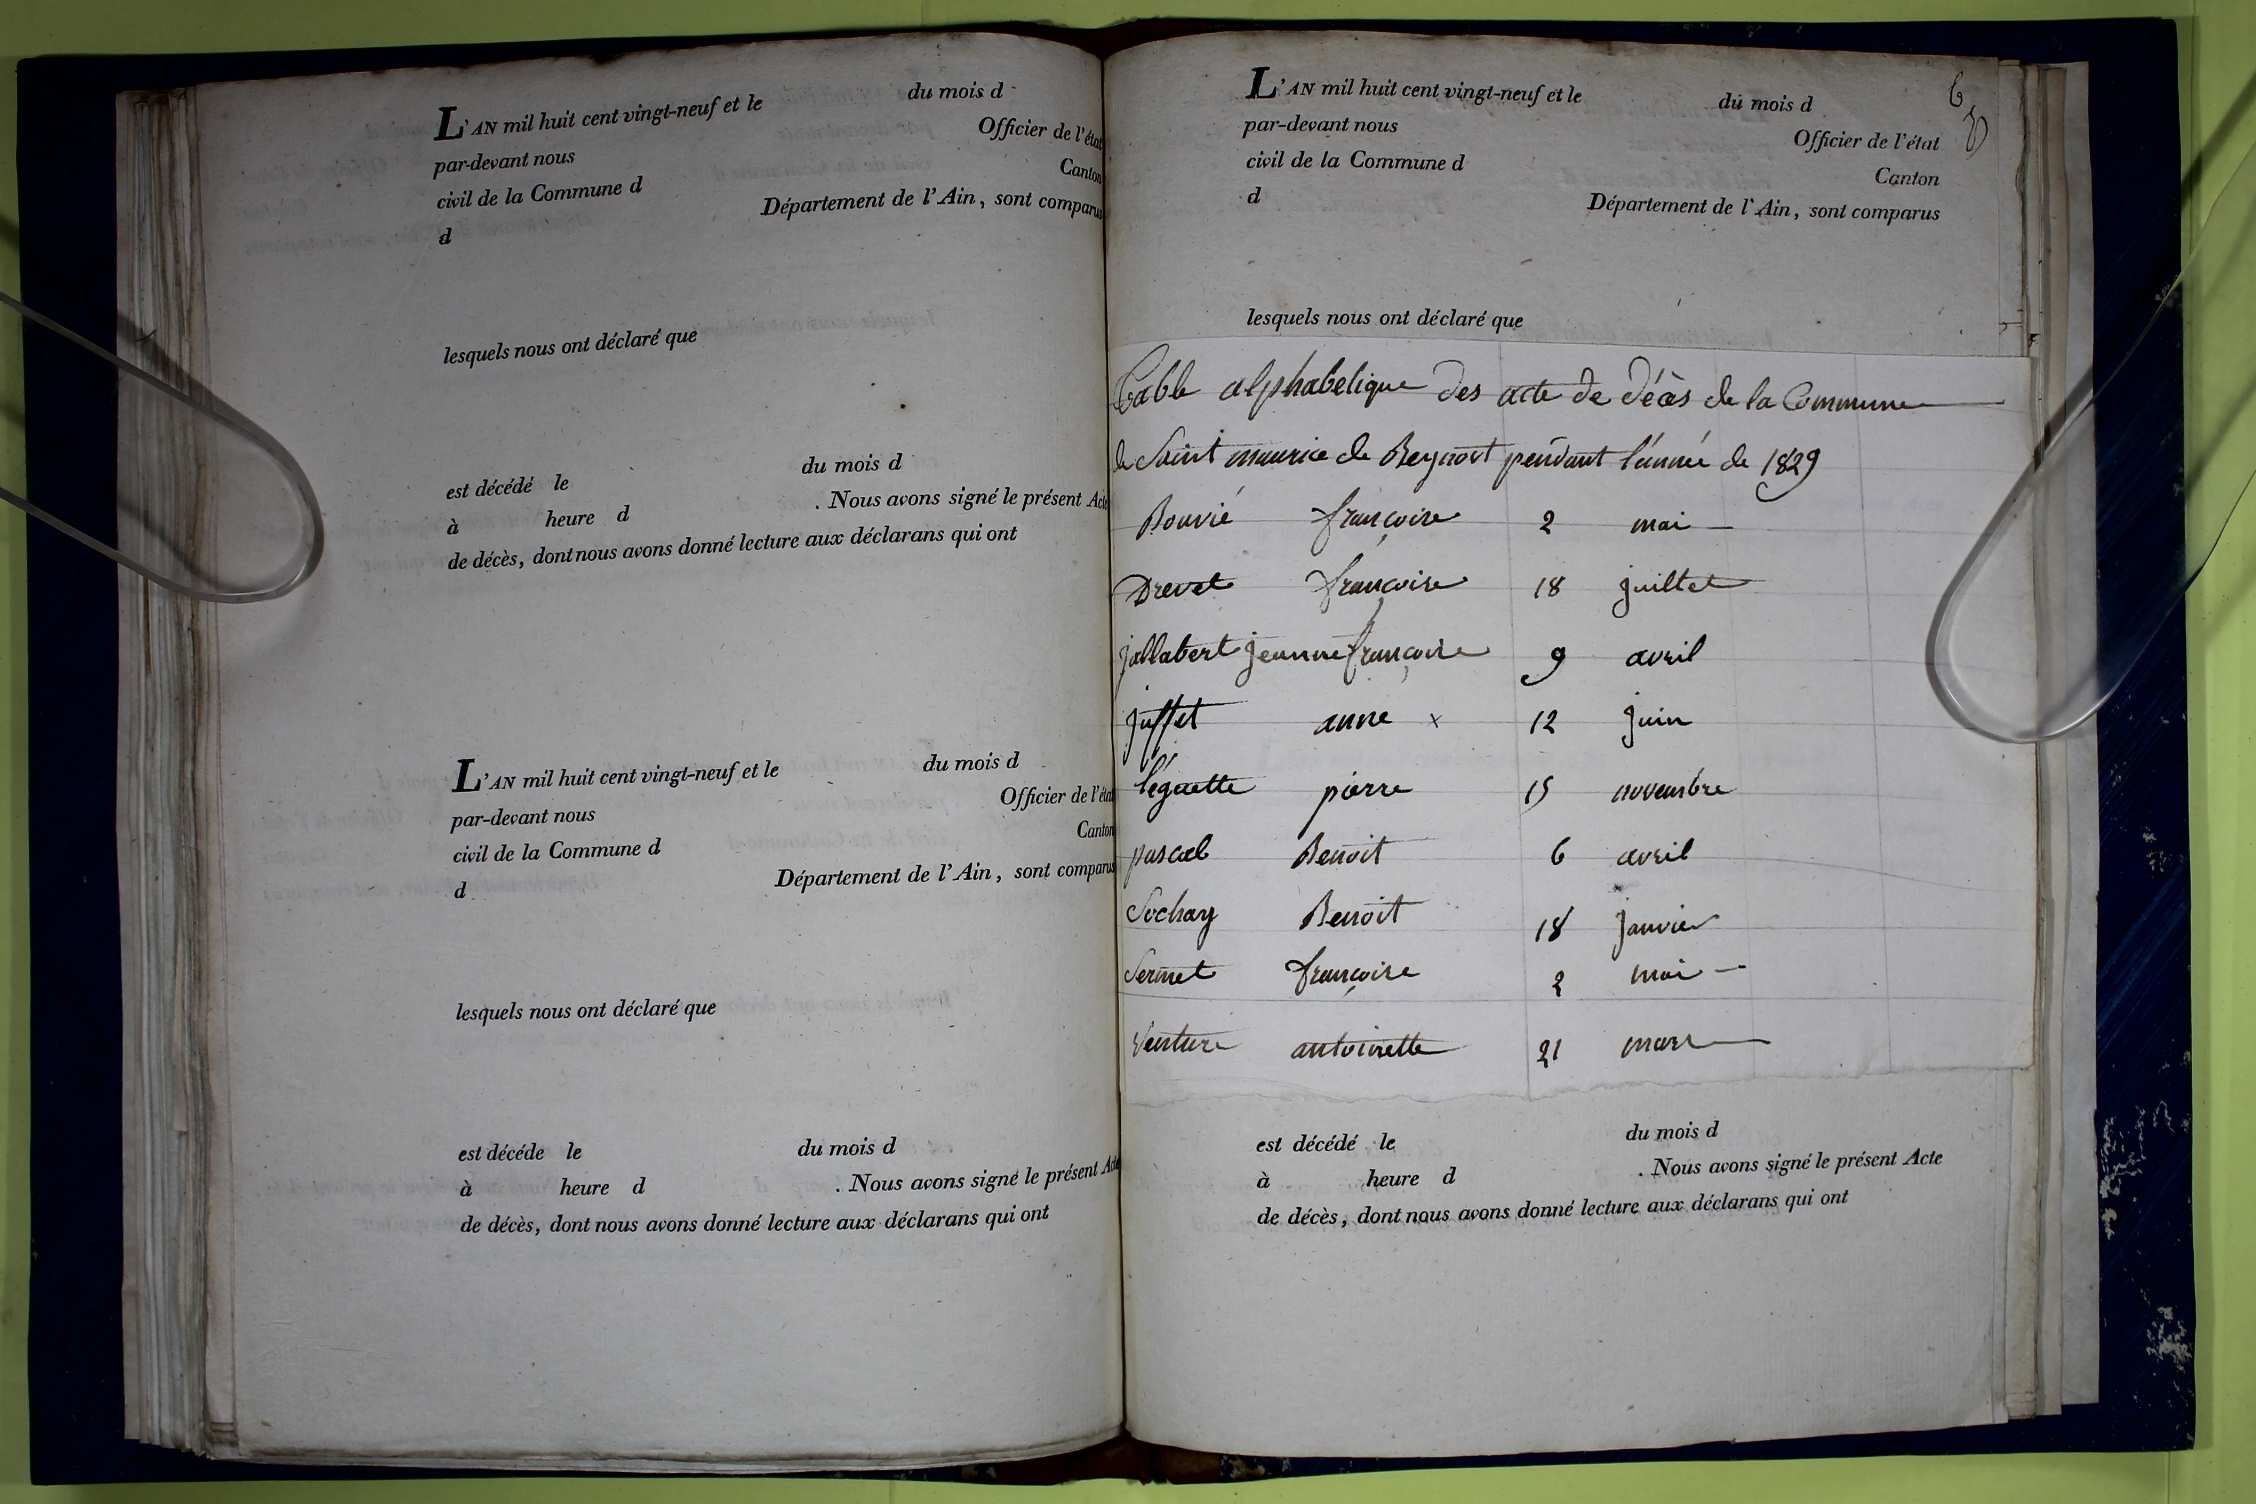 L'AN mil huit cent vingt-neuf et le du mois d
par-devant nous Officier de l'état
civil de la Commune d Canton
d Département de l'Ain, sont comparus
lesquels nous ont déclaré que
est décédé le du mois d
à heure d . Nous avons signé le présent Acte
de décès, dont nous avons donné lecture aux déclarans qui ont
L'AN mil huit cent vingt-neuf et le du mois d
par-devant nous Officier de l'état
civil de la Commune d Canton
d Département de l'Ain, sont comparus
lesquels nous ont déclaré que
est décéde le du mois d
à heure d . Nous avons signé le présent Acte
de décès, dont nous avons donné lecture aux déclarans qui ont
L'AN mil huit cent vingt-neuf et le du mois d
par-devant nous Officier de l'état
civil de la Commune d Canton
d Département de l'Ain, sont comparus
lesquels nous ont déclaré que
Table alphabetique des acte de déces de la Commune
de Saint maurice de Beynost pendant l'année de 1829
Bouvié françoise 2 mai
Drevet françoise 18 juillet
jallabert jeanne françoise 9 avril
juffet anne x 12 juin
léguette pierre 15 novembre
pascal Benoit 6 avril
Sochay Benoit 18 janvier
Sermet françoise 2 mai
Venture antoinette 21 mars
est décédé le du mois d
à heure d . Nous avons signé le présent Acte
de décès, dont nous avons donné lecture aux déclarans qui ont